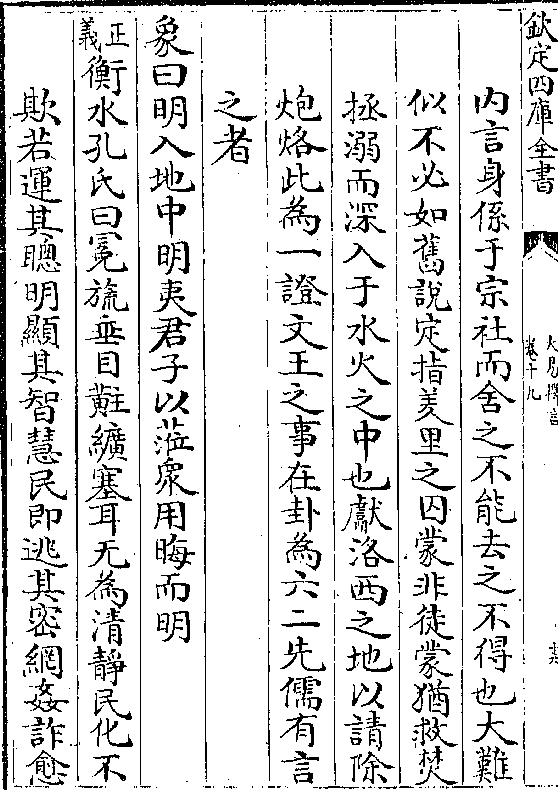 欽定四庫全書
大易擇言
卷十九
内言身係于宗社而舍之不能去之不得也大難
似不必如舊說定指羑里之囚蒙非徒蒙猶救焚
拯溺而深入于水火之中也獻洛西之地以請除
炮烙此為一證文王之事在卦為六二先儒有言
之者
象曰明入地中明夷君子以蒞衆用晦而明
正義衡水孔氏曰冕旒垂目黈纊塞耳无為清靜民化不
欺若運其聰明顯其智慧民即逃其密網姦詐愈